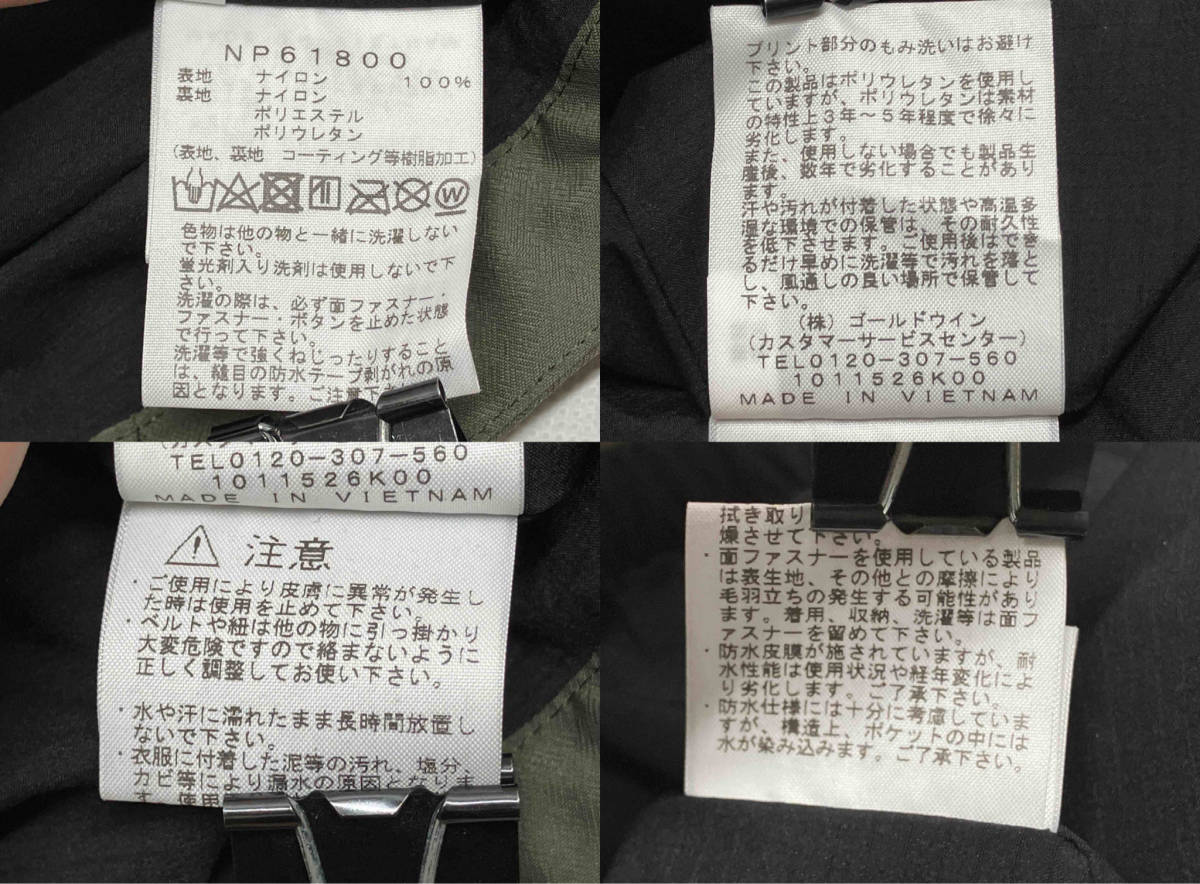 NP61800
表地 ナイロン 100%
裏地 ナイロン
ポリエステル
ポリウレタン
(表地、裏地 コーティング等樹脂加工)
W
色物は他の物と一緒に洗濯しない
で下さい。
蛍光剤入り洗剤は使用しないで下
さい。
洗濯の際は、必ず面ファスナー・
ファスナー・ボタンを止めた状態
で行って下さい。
洗濯等で強くねじったりすること
は、縫目の防水テープ剥がれの原
因となります。ご注意下さい
プリント部分のもみ洗いはお避け
下さい。
この製品はポリウレタンを使用し
ていますが、ポリウレタンは素材
の特性上3年～5年程度で徐々に
劣化します。
また、使用しない場合でも製品生
産後、数年で劣化することがあり
ます。
汗や汚れが付着した状態や高温多
湿な環境での保管は、その耐久性
を低下させます。ご使用後はでき
るだけ早めに洗濯等で汚れを落と
し、風通しの良い場所で保管して
下さい。
(株) ゴールドウイン
(カスタマーサービスセンター)
TEL0120-307-560
1011526K00
MADE IN VIETNAM
TEL0120-307-560
1011526K00
MADE IN VIETNAM
注意
・ご使用により皮膚に異常が発生し
た時は使用を止めて下さい。
・ベルトや紐は他の物に引っ掛かり
大変危険ですので絡まないように
正しく調整してお使い下さい。
・水や汗に濡れたまま長時間放置し
ないで下さい。
・衣服に付着した泥等の汚れ、塩分、
カビ等により漏水の原因となりま
す。使用
拭き取り
燥させて下さい。
・面ファスナーを使用している製品
は表生地、その他との摩擦により
毛羽立ちの発生する可能性があり
ます。着用、収納、洗濯等は面フ
ァスナーを留めて下さい。
・防水皮膜が施されていますが、耐
水性能は使用状況や経年変化によ
り劣化します。ご了承下さい。
・防水仕様には十分に考慮していま
すが、構造上、ポケットの中には
水が染み込みます。ご了承下さい。